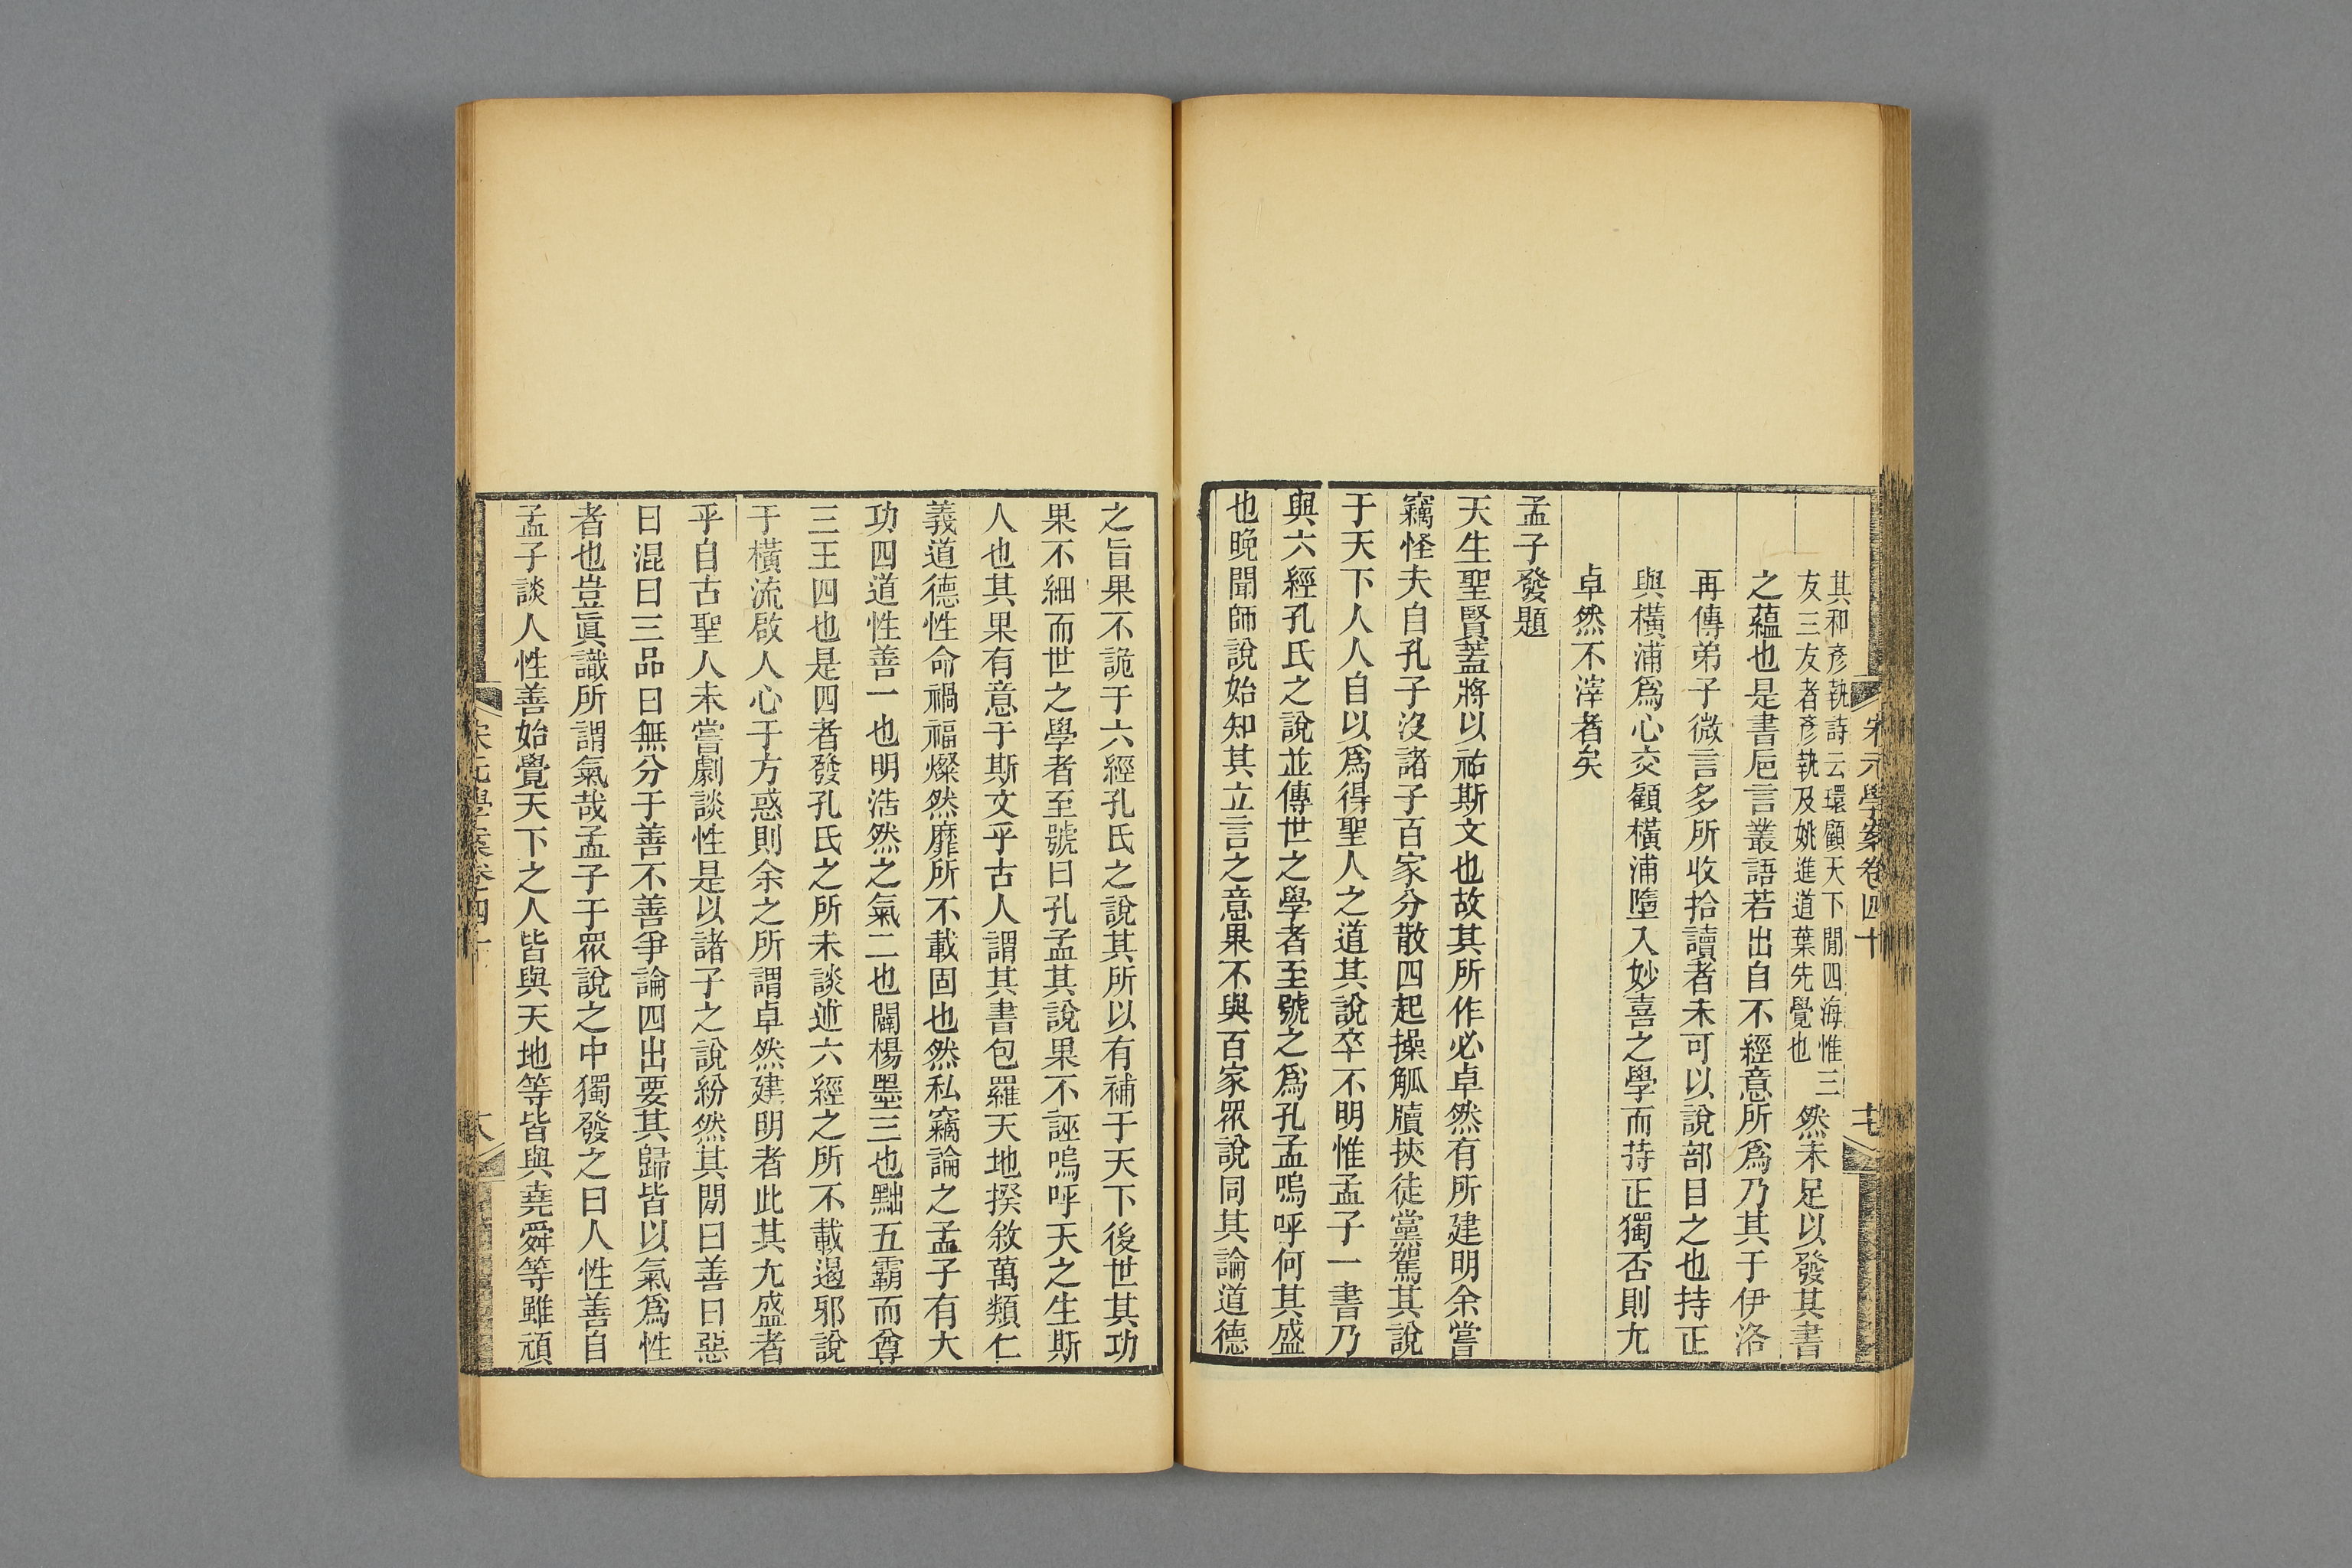 宋元學案卷四十
其和彥執詩云環顧天下閒四海惟三
友三友者彥執及姚進道葉先覺也
然未足以發其書
之蘊也是書巵言叢語若出自不經意所爲乃其于伊洛
再傳弟子微言多所收拾讀者未可以說部目之也持正
與橫浦爲心交顧橫浦墮入妙喜之學而持正獨否則尢
卓然不滓者矣
孟子發題
天生聖賢蓋將以祐斯文也故其所作必卓然有所建明余嘗
竊怪夫自孔子沒諸子百家分散四起操觚牘挾徒黨駕其說
于天下人人自以爲得聖人之道其說卒不明惟孟子一書乃
與六經孔氏之說並傳世之學者至號之爲孔孟嗚呼何其盛
也晚聞師說始知其立言之意果不與百家眾說同其論道德
之旨果不詭于六經孔氏之說其所以有補于天下後世其功
果不細而世之學者至號曰孔孟其說果不誣嗚呼天之生斯
人也其果有意于斯文乎古人謂其書包羅天地揆敘萬類仁
義道德性命禍福燦然靡所不載固也然私竊論之孟子有大
功四道性善一也明浩然之氣二也闢楊墨三也黜五霸而尊
三王四也是四者發孔氏之所未談述六經之所不載遏邪說
于橫流啟人心于方惑則余之所謂卓然建明者此其尢盛者
乎自古聖人未嘗劇談性是以諸子之說紛然其閒曰善曰惡
曰混曰三品曰無分于善不善爭論四出要其歸皆以氣爲性
者也豈眞識所謂氣哉孟子于眾說之中獨發之曰人性善自
孟子談人性善始覺天下之人皆與天地等皆與堯舜等雖頑
宋元學案卷四十